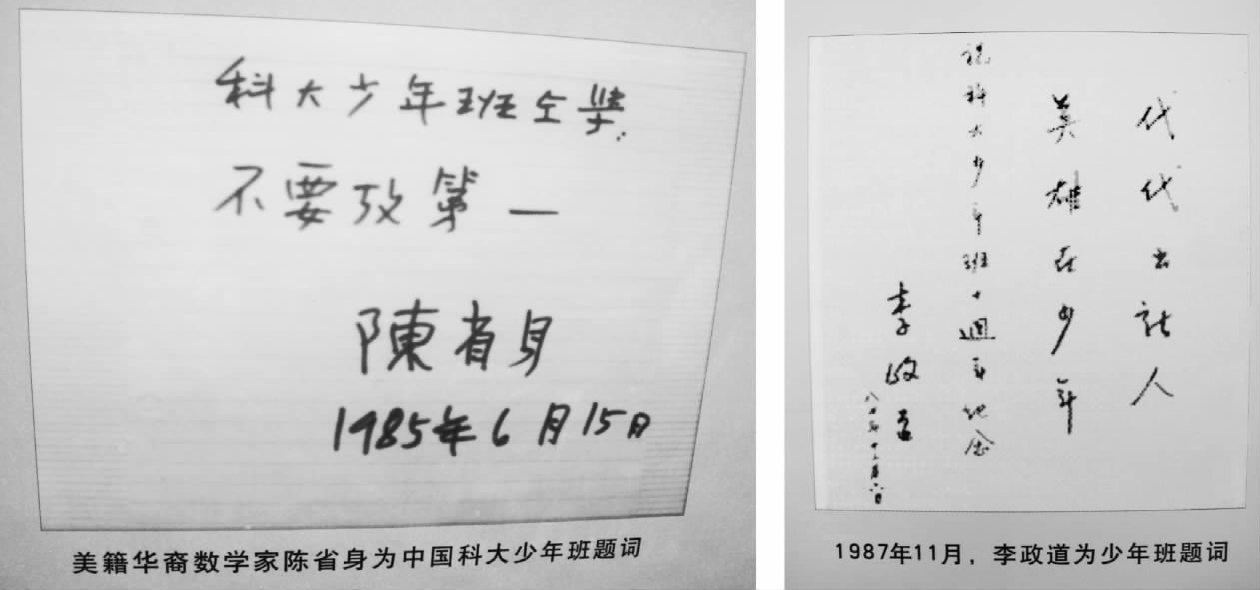 科大少年班仝學:
不要攷第一
陳省身
1985年6月15日
美籍华裔数学家陈省身为中国科大少年班题词
代代出能人
英雄在少年
祝科大少年班十週年纪念
李政道
八七年十一月六日
1987年11月，李政道为少年班题词